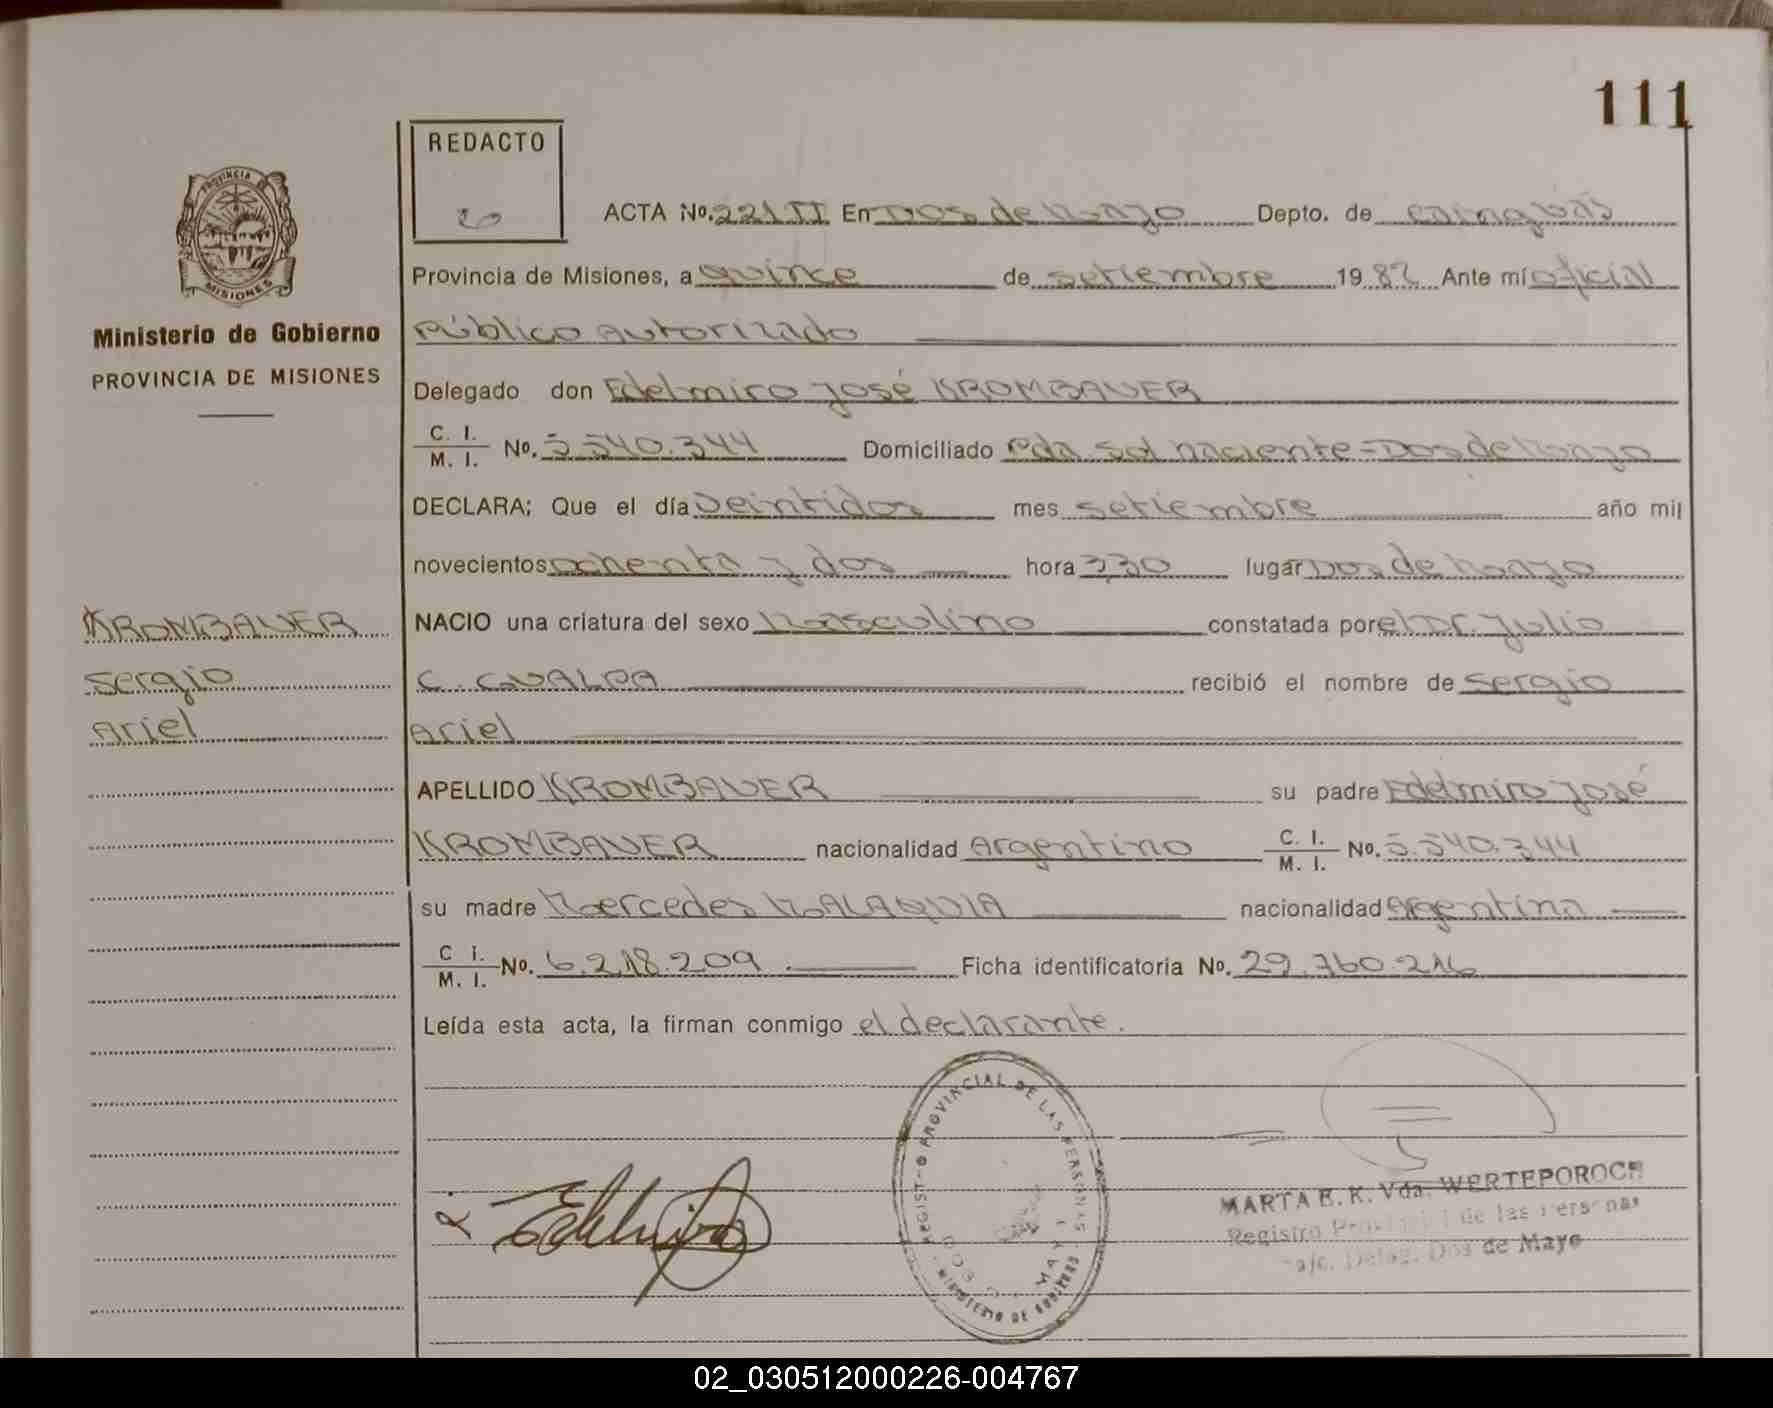 111
REDACTO
ACTA No. 221 II En Dos de Mayo Depto. de Cainguás
PROVINCIA
MISIONES
Provincia de Misiones, a quince de setiembre 1982 Ante mí oficial
Ministerio de Gobierno
público Autorizado
PROVINCIA DE MISIONES
Delegado don Edelmiro José KROMBAUER
C. I.
M. I. No. 5.540.344 Domiciliado Pda. Sol naciente - Dos de Mayo
DECLARA; Que el día veintidos mes setiembre año mil
novecientos ochenta y dos hora 3,30 lugar Dos de Mayo
KROMBAUER
NACIO una criatura del sexo Masculino constatada por el Dr. Julio
Sergio
C. GUALPA recibió el nombre de Sergio
Ariel
Ariel
APELLIDO KROMBAUER su padre Edelmiro José
KROMBAUER nacionalidad Argentino C. I.
M. I. No. 5.540.344
su madre Mercedes MALAQUIA nacionalidad Argentina
C I.
M. I. No. 6.218.209 Ficha identificatoria No. 29.760.216
Leída esta acta, la firman conmigo el declarante.
PROVINCIAL DE LAS PERSONAS
MINISTERIO DE GOBIERNO
MARTA E. K. Vda. WERTEPOROCH
Registro Provincial de las Personas
a/c. Deleg. Dos de Mayo
02_030512000226-004767